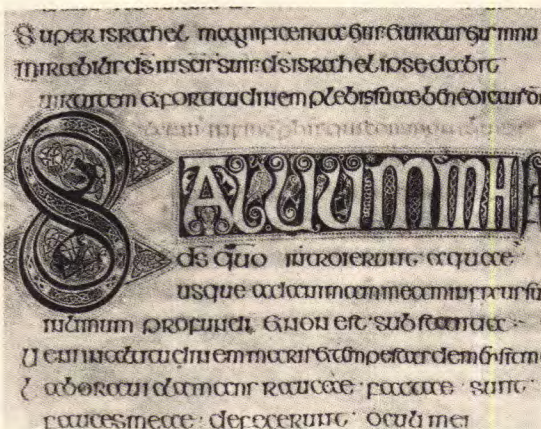 Super israhel magnificentia eius & uirtus eius in nu
mirabilis ds in scis suis ds israhel ipse dabit
uirtutem & fortitudinem plebis suae
SALUUM ME
ds quo introierunt aquae
usque ad animam meam infixus su
in limum profundi & non est substantia
Ueni in altitudinem maris & tempestas
Laboraui clamans raucae factae sunt
fauces meae defecerunt oculi mei